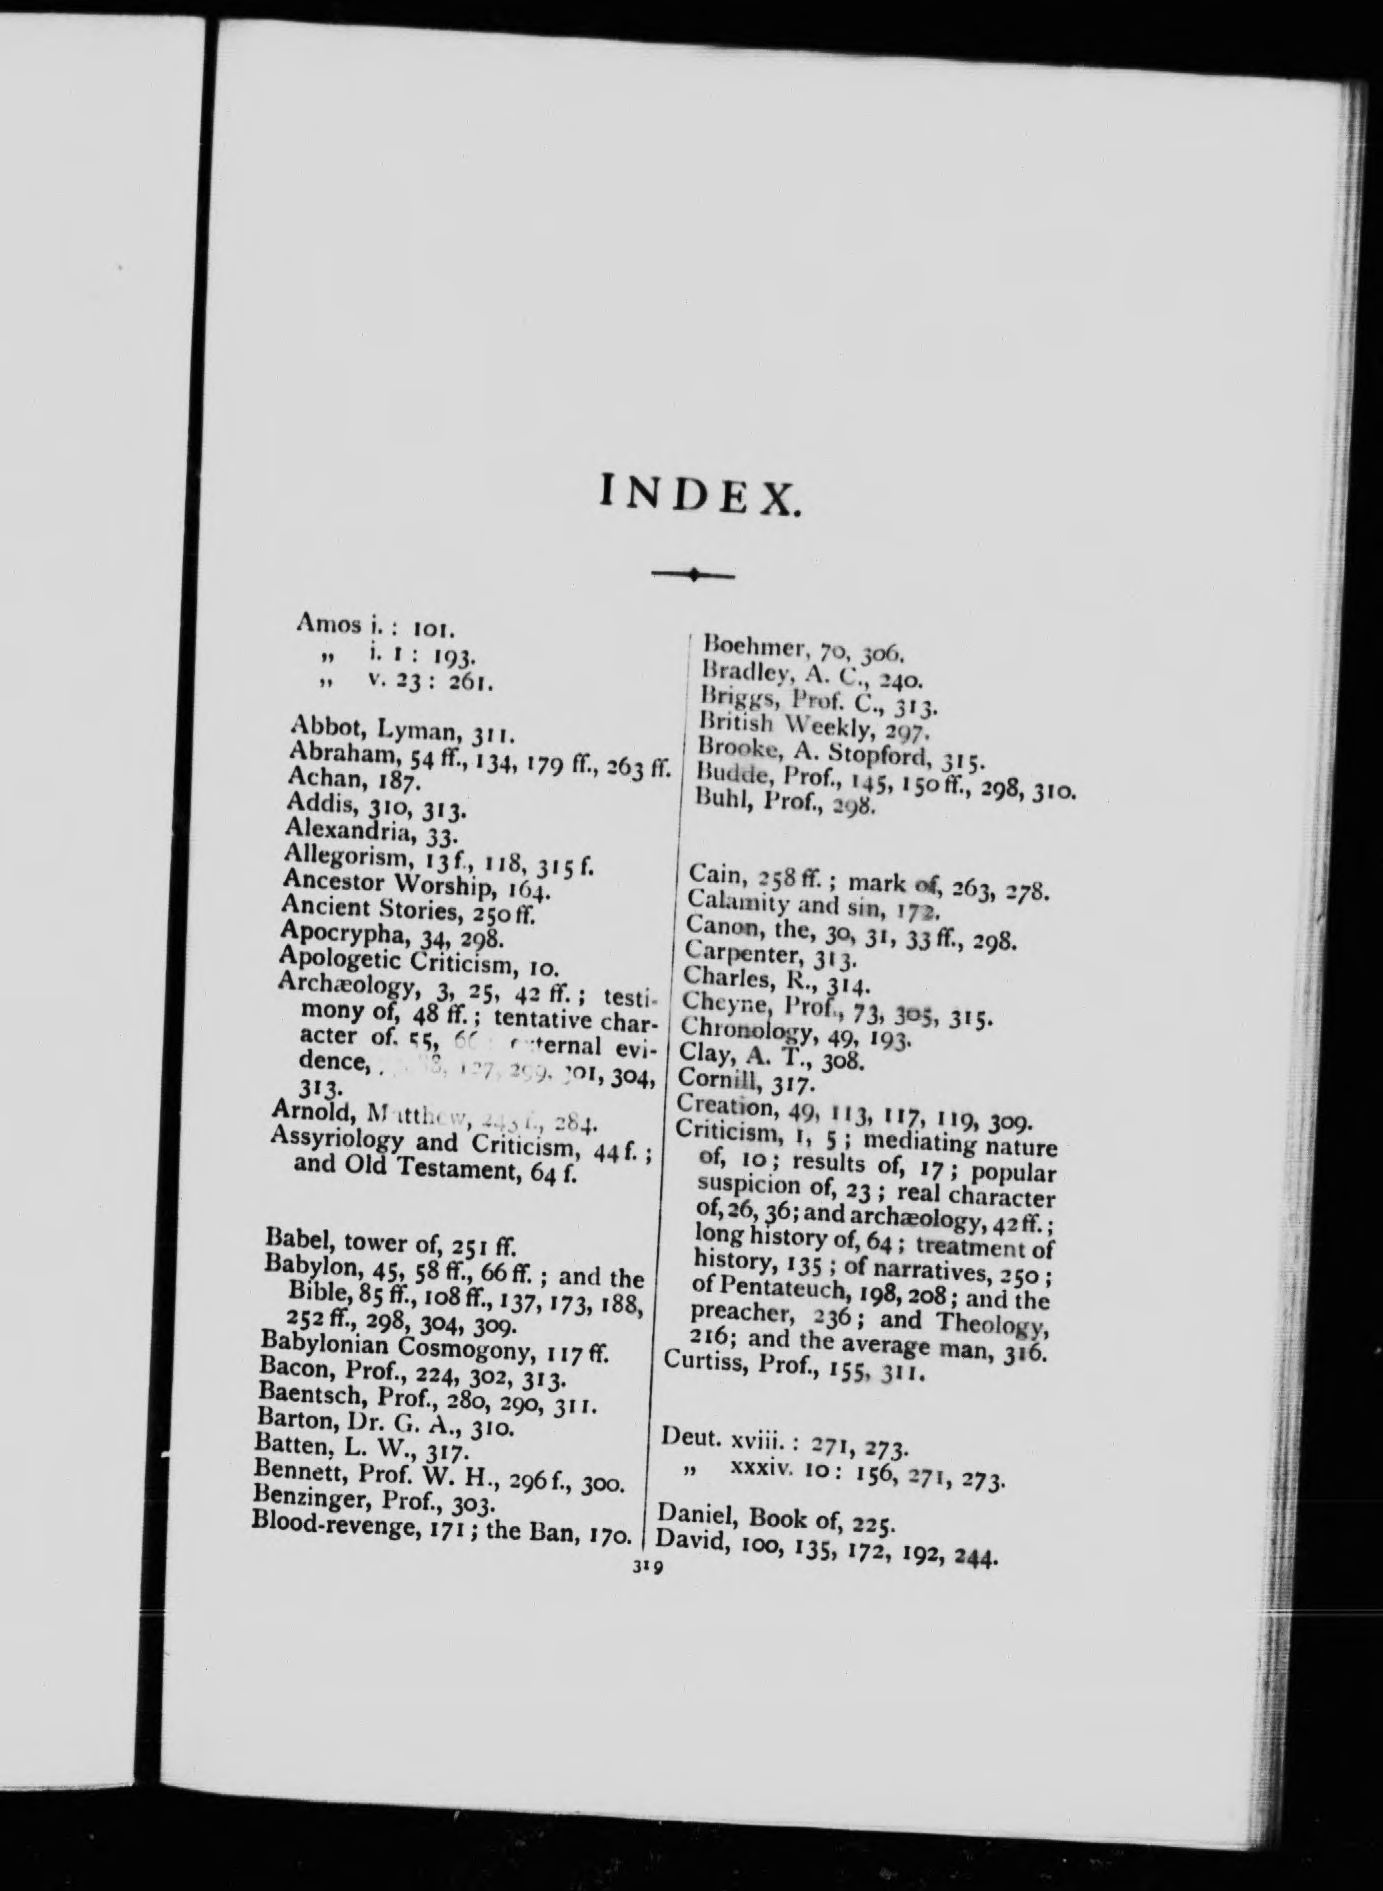 INDEX.
Amos i. : 101.
„ i. 1 : 193.
„ v. 23 : 261.
Abbot, Lyman, 311.
Abraham, 54 ff., 134, 179 ff., 263 ff.
Achan, 187.
Addis, 310, 313.
Alexandria, 33.
Allegorism, 13 f., 118, 315 f.
Ancestor Worship, 164.
Ancient Stories, 250 ff.
Apocrypha, 34, 298.
Apologetic Criticism, 10.
Archæology, 3, 25, 42 ff. ; testi-
mony of, 48 ff. ; tentative char-
acter of, 55, evi-
dence, 299, 301, 304,
313.
Arnold, Matthew, 284.
Assyriology and Criticism, 44 f. ;
and Old Testament, 64 f.
Babel, tower of, 251 ff.
Babylon, 45, 58 ff., 66 ff. ; and the
Bible, 85 ff., 108 ff., 137, 173, 188,
252 ff., 298, 304, 309.
Babylonian Cosmogony, 117 ff.
Bacon, Prof., 224, 302, 313.
Baentsch, Prof., 280, 290, 311.
Barton, Dr. G. A., 310.
Batten, L. W., 317.
Bennett, Prof. W. H., 296 f., 300.
Benzinger, Prof., 303.
Blood-revenge, 171 ; the Ban, 170.
Boehmer, 70, 306.
Bradley, A. C., 240.
Briggs, Prof. C., 313.
British Weekly, 297.
Brooke, A. Stopford, 315.
Budde, Prof., 145, 150 ff., 298, 310.
Buhl, Prof., 298.
Cain, 258 ff. ; mark of, 263, 278.
Calamity and sin, 172.
Canon, the, 30, 31, 33 ff., 298.
Carpenter, 313.
Charles, R., 314.
Cheyne, Prof., 73, 305, 315.
Chronology, 49, 193.
Clay, A. T., 308.
Cornill, 317.
Creation, 49, 113, 117, 119, 309.
Criticism, 1, 5 ; mediating nature
of, 10 ; results of, 17 ; popular
suspicion of, 23 ; real character
of, 26, 36 ; and archæology, 42 ff. ;
long history of, 64 ; treatment of
history, 135 ; of narratives, 250 ;
of Pentateuch, 198, 208 ; and the
preacher, 236 ; and Theology,
216; and the average man, 316.
Curtiss, Prof., 155, 311.
Deut. xviii. : 271, 273.
„ xxxiv. 10 : 156, 271, 273.
Daniel, Book of, 225.
David, 100, 135, 172, 192, 244.
319